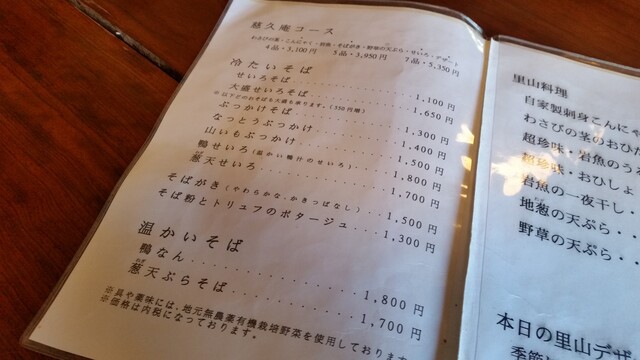 慈久庵コース
わさびの茎・こんにゃく・岩魚・そばがき・野草の天ぷら・せいろ・デザート
4品・3,100円 5品・3,950円 7品・5,350円
冷たいそば
せいろそば 1,100円
大盛せいろそば 1,650円
※以下どのおそばも大盛を承ります。(550円増)
ぶっかけそば 1,300円
なっとうぶっかけ 1,400円
山いもぶっかけ 1,500円
鴨せいろ(温かい鴨汁のせいろ) 1,800円
葱天せいろ 1,700円
そばがき(やわらかな、かきっぱなし) 1,500円
そば粉とトリュフのポタージュ 1,300円
温かいそば
鴨なん 1,800円
葱天ぷらそば 1,700円
※具や薬味には、地元無農薬有機栽培野菜を使用しております
※価格は内税になっております。
里山料理
自家製刺身こんにゃ
わさびの茎のおひた
超珍味・岩魚のう
超珍味・おひしょ
岩魚の一夜干し・
地葱の天ぷら・・
野草の天ぷら・・
本日の里山デザ
季節